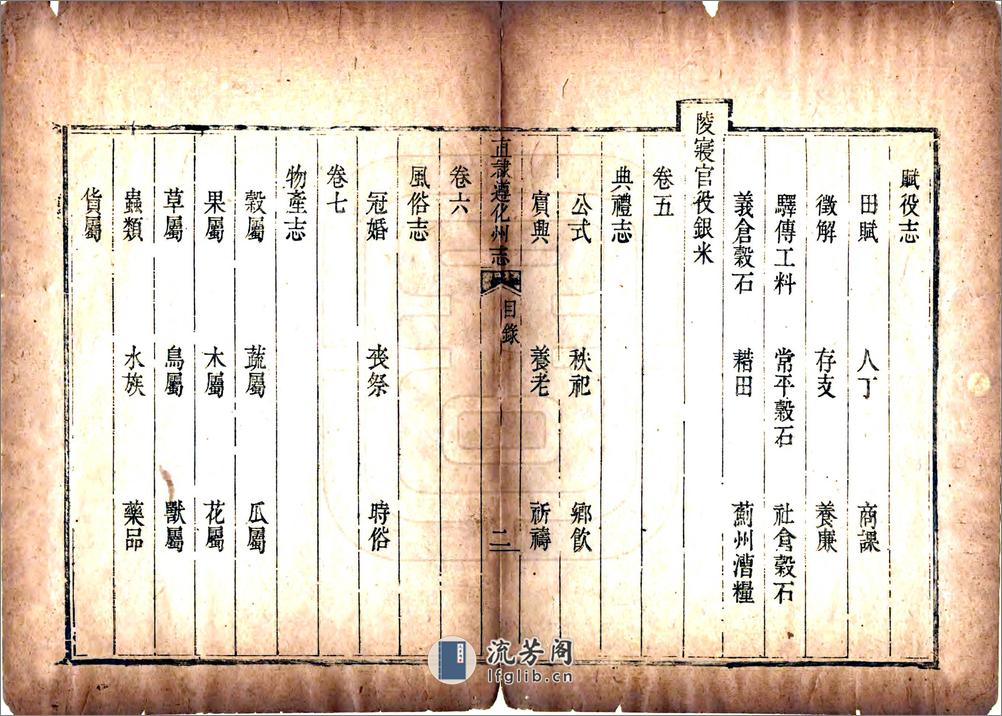 賦役志
田賦 人丁 商課
徵解 存支 養廉
驛傳工料 常平穀石 社倉穀石
義倉穀石 耤田 薊州漕糧
陵寢官役銀米
卷五
典禮志
公式 秩祀 鄉飲
賓興 養老 祈禱
直隸遵化州志 目錄 二
卷六
風俗志
冠婚 喪祭 時俗
卷七
物產志
穀屬 蔬屬 瓜屬
果屬 木屬 花屬
草屬 鳥屬 獸屬
蟲類 水族 藥品
貨屬
流芳阁
lfglib.cn